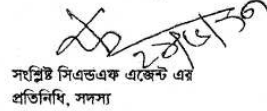 সংশ্লিষ্ট সিএন্ডএফ এজেন্ট এর
প্রতিনিধি, সদস্য